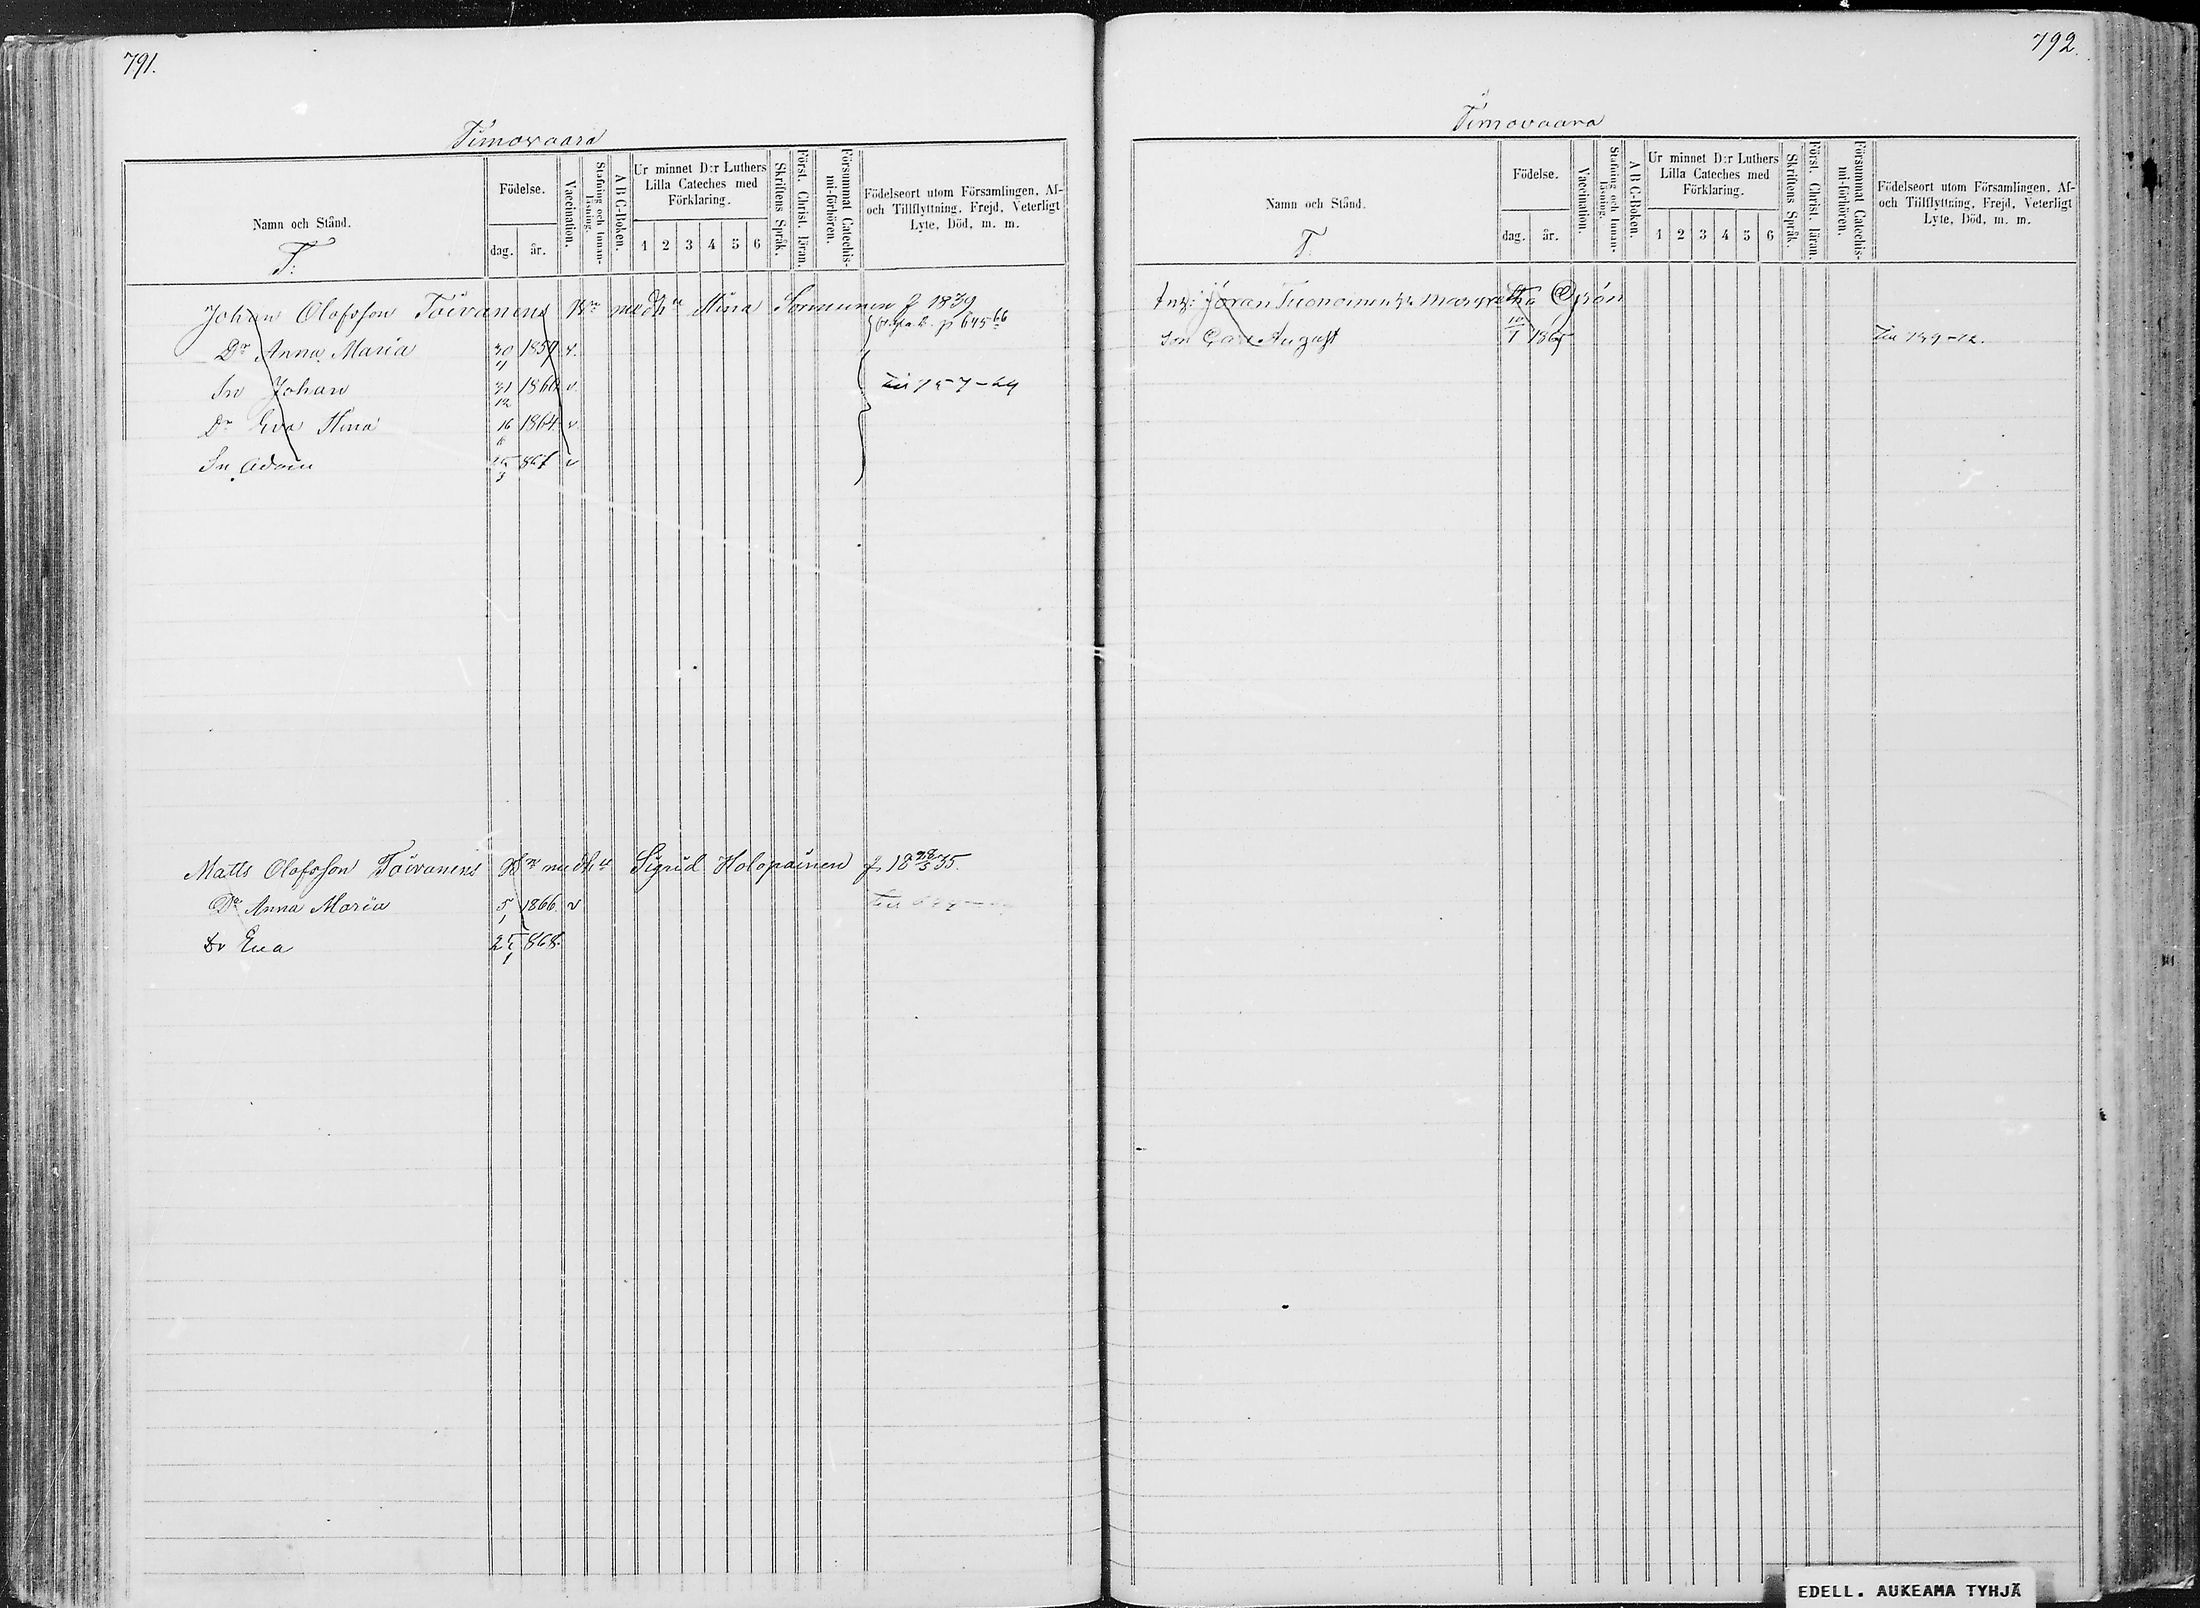 791.
Timovaara
Namn och Stånd.
T.
Födelse.
dag.
år.
Vaccination.
Stafning och Innan-läsning.
A B C-Boken.
Ur minnet D:r Luthers
Lilla Cateches med
Förklaring.
1 2 3 4 5 6
Skriftens Språk.
Först. Christ. läran.
Försummat Catechis-mi-förhören.
Födelseort utom Församlingen, Af-
och Tillflyttning, Frejd, Veterligt
Lyte, Död, m. m.
Johan Olofsson Toivanens Bn med h u Stina Sormunen f 1839
p 645 66
Dr Anna Maria 30 1859 v.
Sn Johan 31/12 1860 v.
Dr Eva Stina 16 1864 v.
Sn Adam 3 867 v
Matts Olofsson Toivanens Bn med h u Sigrid Holopainen f 18 28/3 35.
Dr Anna Maria 5/1 1866 v
Dr Eva 1 868.
792.
Timovaara
Namn och Stånd.
T.
Födelse.
dag.
år.
Vaccination.
Stafning och Innan-läsning.
A B C-Boken.
Ur minnet D:r Luthers
Lilla Cateches med
Förklaring.
1 2 3 4 5 6
Skriftens Språk.
Först. Christ. läran.
Försummat Catechis-mi-förhören.
Födelseort utom Församlingen, Af-
och Tillflyttning, Frejd, Veterligt
Lyte, Död, m. m.
Jöran Tuononen Margretha Grön
son Carl August 10/1
EDELL. AUKEAMA TYHJÄ